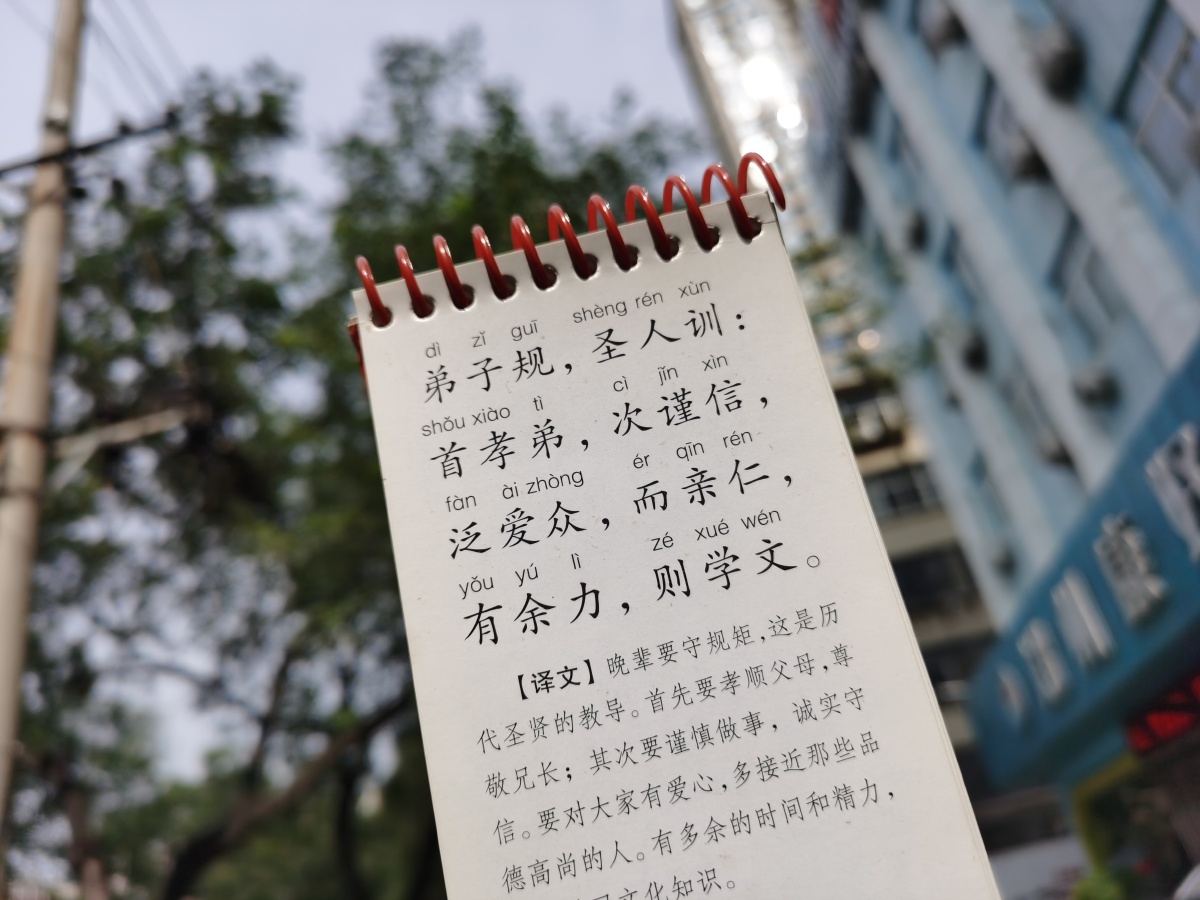 dì zǐ guī shèng rén xùn
弟子规，圣人训：
shǒu xiào tì cì jǐn xìn
首孝弟，次谨信，
fàn ài zhòng ér qīn rén
泛爱众，而亲仁，
yǒu yú lì zé xué wén
有余力，则学文。
【译文】晚辈要守规矩，这是历
代圣贤的教导。首先要孝顺父母，尊
敬兄长；其次要谨慎做事，诚实守
信。要对大家有爱心，多接近那些品
德高尚的人。有多余的时间和精力，
文化知识。